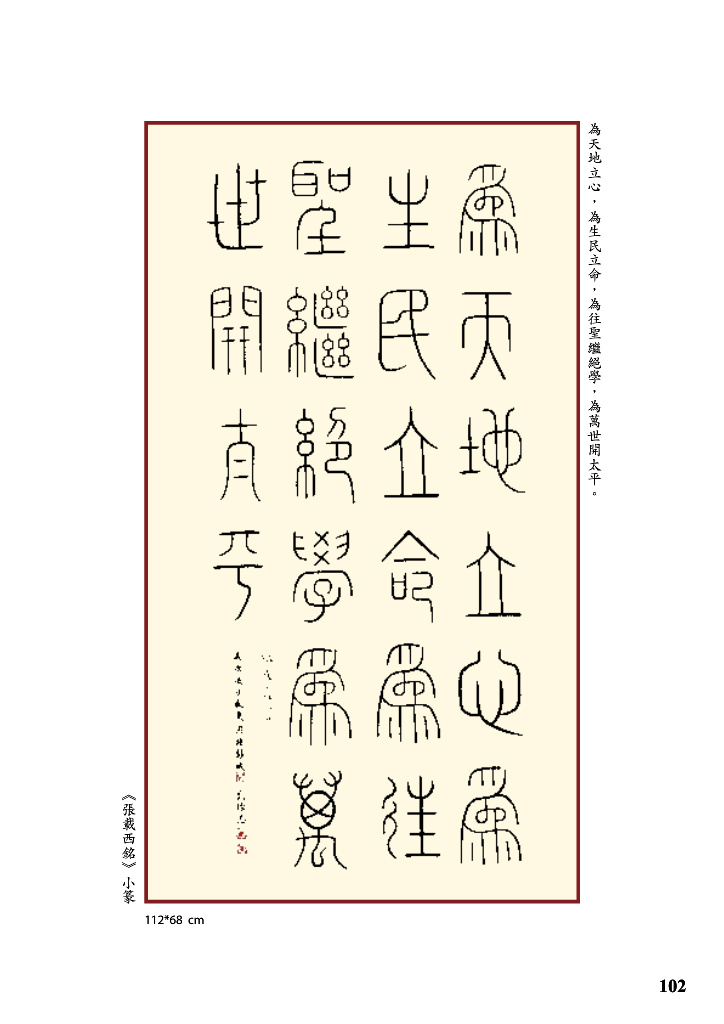 為天地立心，為生民立命，為往聖繼絕學，為萬世開太平。
為天地立心為
生民立命為往
聖繼絕學為萬
世開太平
《張載西銘》小篆
112*68 cm
102